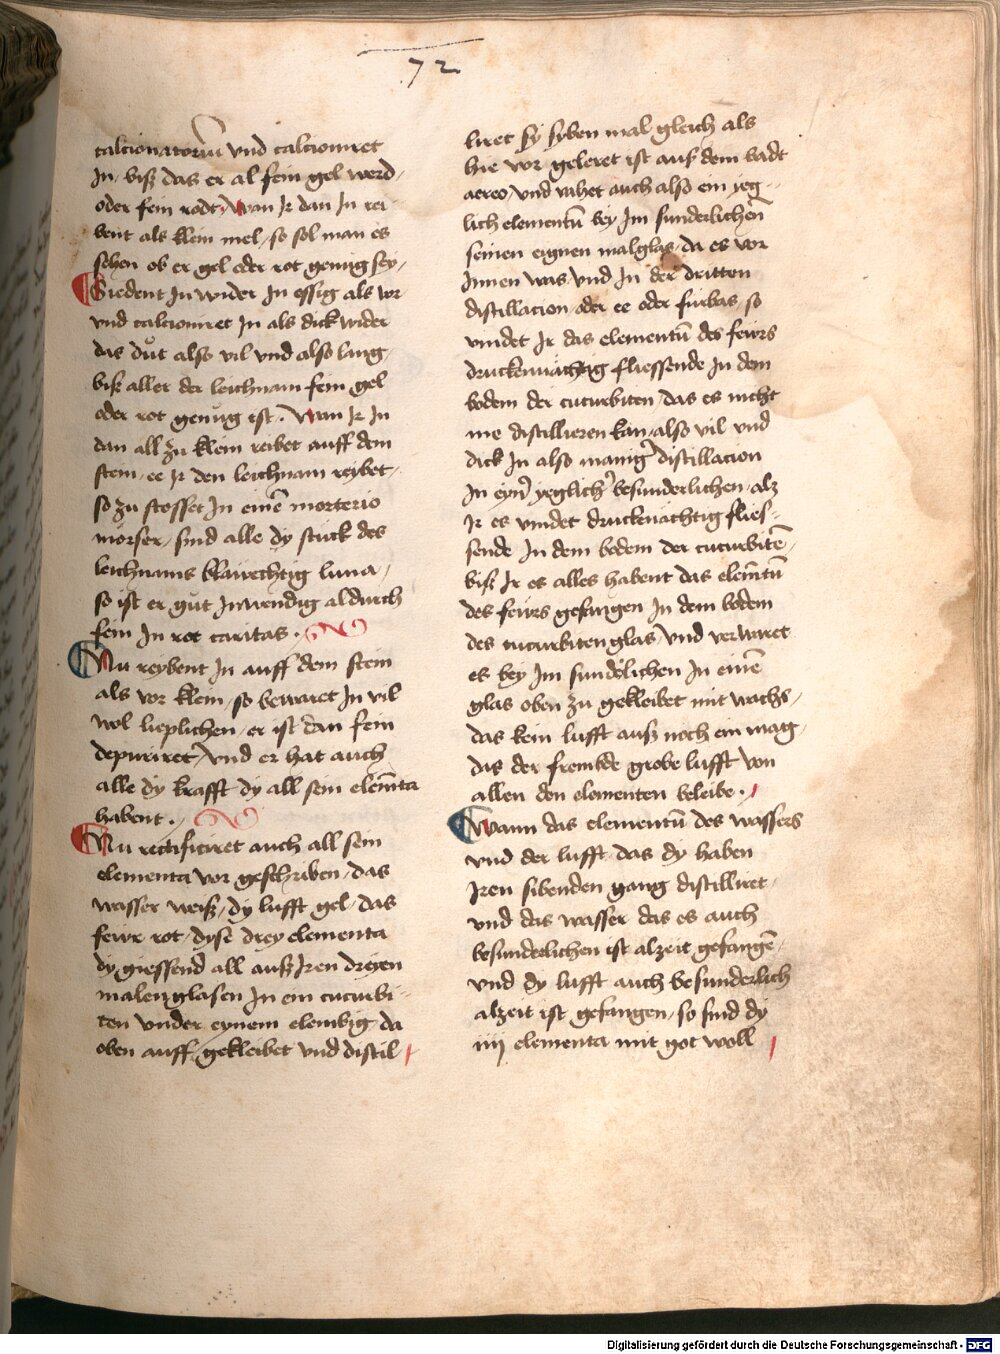 72
calcionatoriū vnd calcioniret
In, biß das er al sein gel werd,
oder sein rodt, Wan Ir dan In rei
bent als klein mel, so sol man es
sehen ob er gel oder rot genug sey,
Siedent In wider In essig als vor
vnd calcioniret In als dick wider
das důt also vil vnd also lang
biß aller der leichnam sein gel
oder rot genůg ist. Wan Ir In
dan all zu klein reibet auff dem
stein, ee Ir den leichnam reybet,
so zu stosset In einē morterio
mörser, sind alle dy stuck des
leichnams blauechtig luna,
so ist er gůt Inwendig al durch
sein In rot caritas.
Nu reybent In auff dem stein
als vor klein, so bewaret In vil
wol lieplichen, er ist dan sein
depuriret, vnd er hat auch
alle dy krafft dy all sein elemēta
habent.
Nu rectificiret auch all sein
elementa vor geschriben, das
wasser weiß, dy lufft gel, das
feiwr rot, dyse drey elementa
dy giessend all auß Iren dreyen
malenglasen In ein cucurbi-
ten vnder eynem elembig da
oben auff gekleibet vnd distil
liret sy syben mal gleich als
hie vor geleret ist auß dem badt
aereo, vnd vahet auch also ein yeg-
lich elementū bey Im sunderlichen
seinen eignen malglas, da es vor
Innen was, vnd In der dritten
distillacion oder ee oder furbas, so
vindet Ir das elementū des feiwrs
druckenächtig fliessende In dem
bodem der cucurbiten, das es nicht
me distillieren kan, also vil vnd
dick In also manig distillacion
In eyn yeglich besunderlichen, alz
Ir es vindet druckenächtig flies-
sende In dem bodem der cucurbitē,
biß Ir es alles habent das elemētū
des feiwrs gefangen In dem bodem
des cucurbiten glas, vnd verwaret
es bey Im sunderlichen In einē
glas oben zu gekleibet mit wachs,
das kein lufft auß noch ein mag,
das der frembde grobe lufft von
allen den elementen beleibe.
Wann das elementū des wassers
vnd der lufft, das dy haben
Iren sibenden gang distilliret,
vnd das wasser das es auch
besunderlichen ist alzeit gefangē,
vnd dy lufft auch besunderlich
alzeit ist gefangen, so sind dy
iiij elementa mit got woll
Digitalisierung gefördert durch die Deutsche Forschungsgemeinschaft - DFG